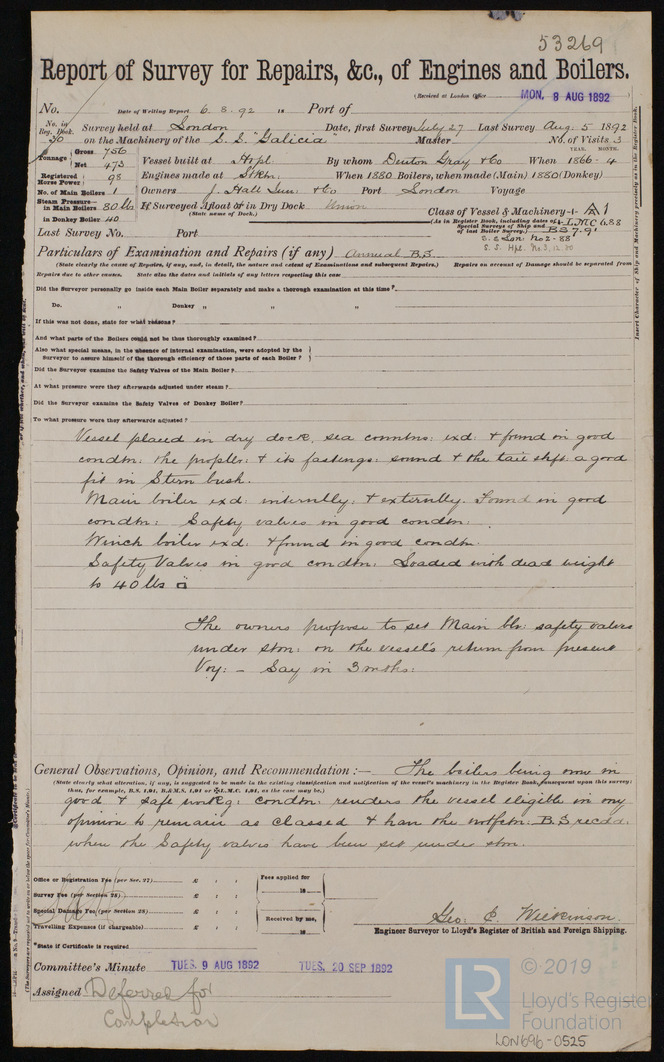 53269
Report of Survey for Repairs, &c., of Engines and Boilers.
(Received at London Office MON. 8 AUG 1892 )
No. Date of Writing Report 6. 8. 92 18 Port of
No. in Reg. Book. Survey held at London Date, first Survey July 27 Last Survey Aug. 5 1892
30 on the Machinery of the S. S. "Galicia" Master No. of Visits 3
Tonnage Gross 756 Net 473 Vessel built at Htpl By whom Denton Gray & Co When YEAR. MONTH. 1866-4
Registered Horse Power 98 Engines made at Stkn. When 1880 Boilers, when made (Main) 1880 (Donkey)
No. of Main Boilers 1 Owners J. Hall Junr & Co Port London Voyage
Steam Pressure in Main Boilers 80 lbs If Surveyed Afloat or in Dry Dock Union
in Donkey Boiler 40 (State name of Dock.) Class of Vessel & Machinery A1
(As in Register Book, including dates of Special Surveys of Ship and of last Boiler Survey.) LMC 6.88
BS 7.91
Last Survey No. Port S.S Lon: No2-88
Particulars of Examination and Repairs (if any) Annual B.S.
(State clearly the cause of Repairs, if any, and, in detail, the nature and extent of Examinations and subsequent Repairs.) Repairs on account of Damage should be separated from
Repairs due to other causes. State also the dates and initials of any letters respecting this case
Did the Surveyor personally go inside each Main Boiler separately and make a thorough examination at this time?
Do. „ Donkey „ „ „
If this was not done, state for what reasons?
And what parts of the Boilers could not be thus thoroughly examined?
Also what special means, in the absence of internal examination, were adopted by the
Surveyor to assure himself of the thorough efficiency of those parts of each Boiler?
Did the Surveyor examine the Safety Valves of the Main Boiler?
At what pressure were they afterwards adjusted under steam?
Did the Surveyor examine the Safety Valves of Donkey Boiler?
To what pressure were they afterwards adjusted?
Vessel placed in dry dock, sea conntns: exd: & found in good
condtn: the propllr: & its fastengs: sound & the tail shft: a good
fit in Stern bush.
Main boiler exd: internlly: & externlly. Found in good
condtn: Safety valves in good condtn:
Winch boiler exd: & found in good condtn.
Safety Valves in good condtn: Loaded with dead weight
to 40 lbs □
The owners propose to set Main blr: safety valves
under stm: on the vessel's return from present
Voy: - Say in 3 mths:
General Observations, Opinion, and Recommendation :— The boilers being now in
(State clearly what alteration, if any, is suggested to be made in the existing classification and notification of the vessel's machinery in the Register Book, consequent upon this survey;
thus, for example, B.S. 1,91, B.&M.S. 1,91 or L.M.C. 1,91, as the case may be.)
good & safe wrkg: condtn: renders the vessel eligible in my
opinion to remain as classed & han the notfctn: B.S recdd:
when the Safety valves have been set under stm.
Office or Registration Fee (per Sec. 27) £ : :
Survey Fee (per Section 28) £ : :
Special Damage Fee (per Section 28) £ : :
Travelling Expenses (if chargeable) £ : :
Fees applied for
18
Received by me,
18
*State if Certificate is required
Geo: E. Wilkinson.
Engineer Surveyor to Lloyd's Register of British and Foreign Shipping.
Committee's Minute TUES. 9 AUG 1892 TUES. 20 SEP 1892
Assigned Deferred for
Completion
Insert Character of Ship and Machinery precisely as in the Register Book.
LR
© 2019
Lloyd's Register
Foundation
LON696-0525